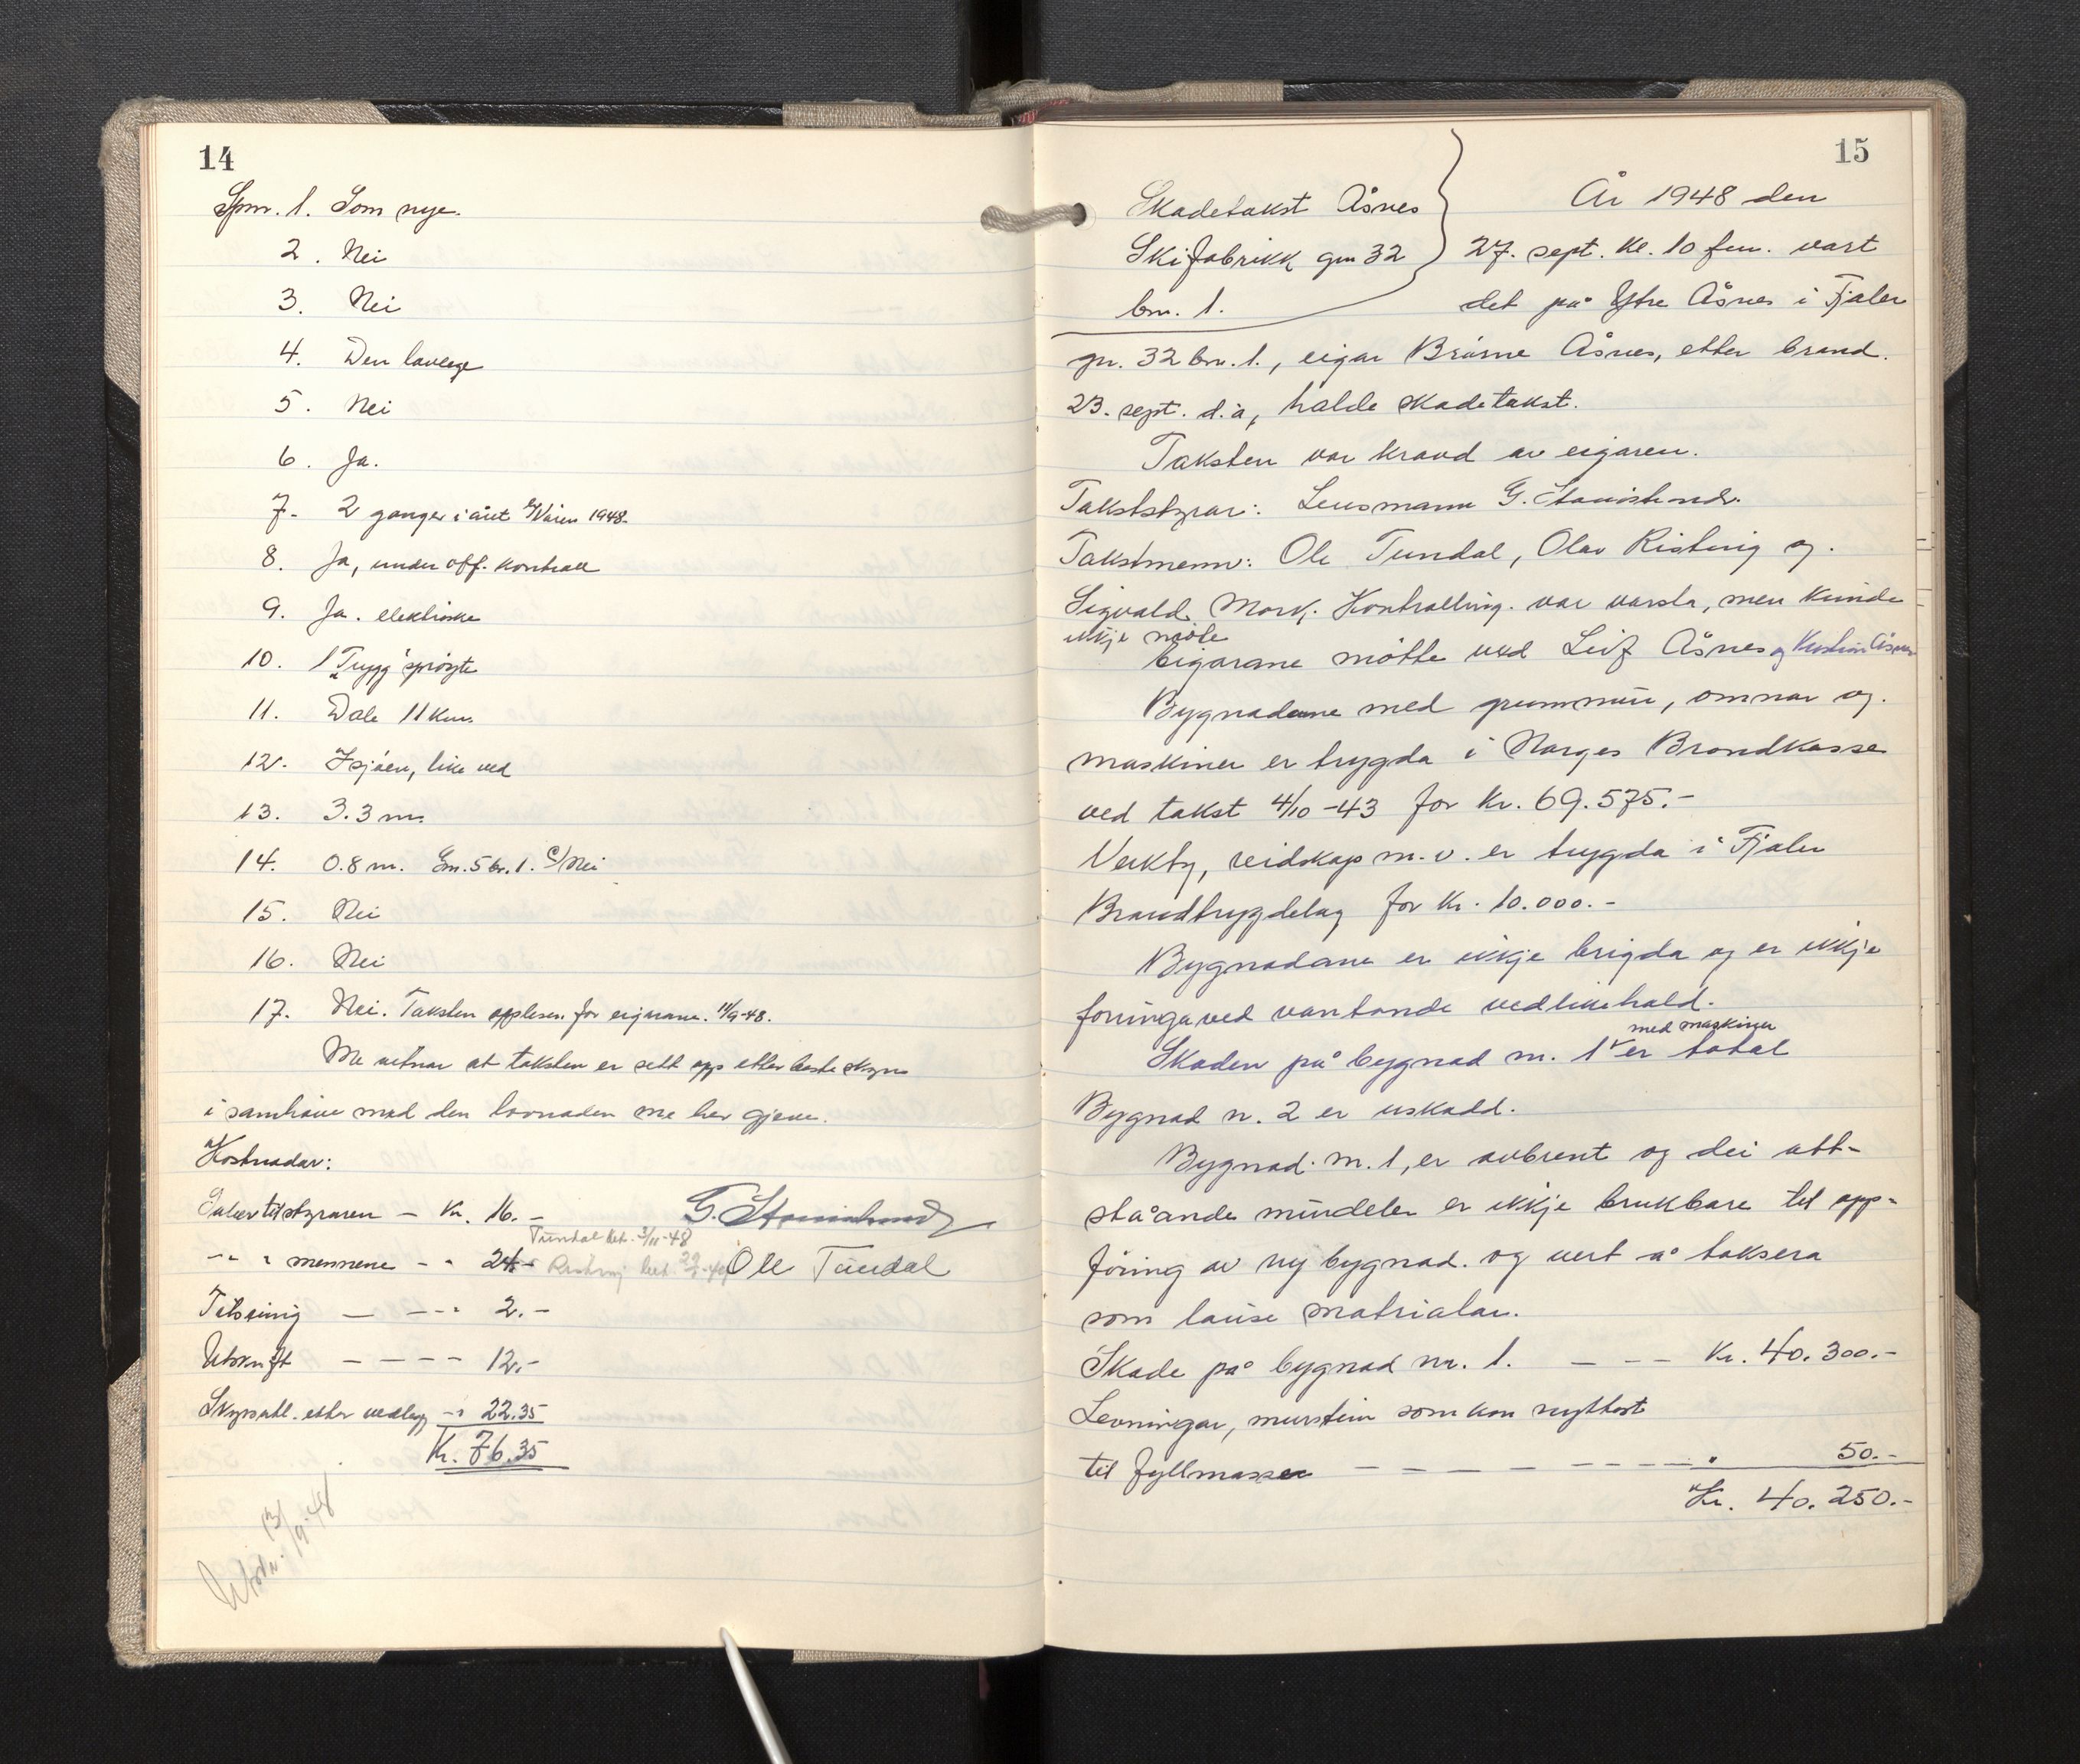 14
Spm. 1. Som nye.
2. Nei
3. Nei
4. Den lavlege
5. Nei
6. Ja.
7. 2 ganger i året Våren 1948.
8. Ja, under off. kontroll
9. Ja. elektriske
10. 1 "Trygg" sprøyte
11. Dale 11 km.
12. I sjøen, like ved
13. 3.3 m.
14. 0.8 m. Gm. 5 br. 1. c/ Nei
15. Nei
16. Nei
17. Nei. Taksten opplesen for eigarane. 11/9-48.
Me vitnar at taksten er sett opp etter beste skyn
i samhøve med den lovnaden me har gjeve.
Kostnadar:
til styraren - Kr. 16.-
G. Stavøstrand
Tundal bet. 3/11-48
-"- " mennene - " 24.-
Ole Tundal
Tilseiing — - - " 2.-
Utskrift - - - - 12.-
Skyssutl. etter vedlegg - " 22.35
Kr. 76.35
Utskr. 13/9-48
15
Skadetakst Åsnes
Skifabrikk gm 32
bm. 1.
År 1948 den
27. sept. kl. 10 fm. vart
det på Ytre Åsnes i Fjaler
gn. 32 bn. 1., eigar Brørne Åsnes, etter brand
23. sept. d.å, halde skadetakst.
Taksten var kravd av eigaren.
Takststyrar: Lensmann G. Stavøstrand.
Takstmenn: Ole Tundal, Olav Risting og
Sigvald Mork. Kontrolling. var varsla, men kunde
ikkje møte
Eigarane møtte ved Leif Åsnes og Kristian Åsnes
Bygnadane med grunnmur, omnar og
maskiner er trygda i Norges Brandkasse
ved takst 4/10-43 for kr. 69.575.-
Verkty, reidskap m.v. er trygda i Fjaler
Brandtrygdelag for kr. 10.000.-
Bygnadane er ikkje brigda og er ikkje
foringa ved vantande vedlikehald.
med maskiner
Skaden på bygnad nr. 1 er total
Bygnad n. 2 er uskadd.
Bygnad nr. 1, er avbrent og dei att-
ståande murdeler er ikkje brukbare til opp-
føring av ny bygnad. og vert å taksera
som lause matrialar.
Skade på bygnad nr. 1. — - — Kr. 40.300.-
Levningar, murstein som kan nyttast
til fyllmasse — — — — - - - - " 50.-
Kr. 40.250.-